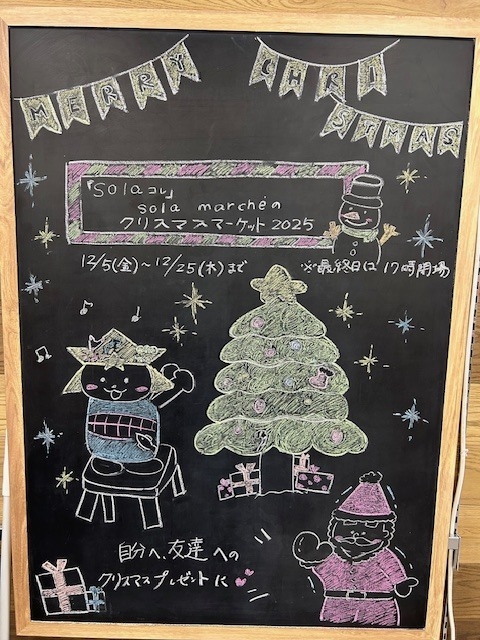 MERRY CHRISTMAS
「solaコレ」
sola marchéの
クリスマスマーケット2025
12/5(金)~12/25(木)まで
※最終日は17時閉場
自分へ、友達への
クリスマスプレゼントに